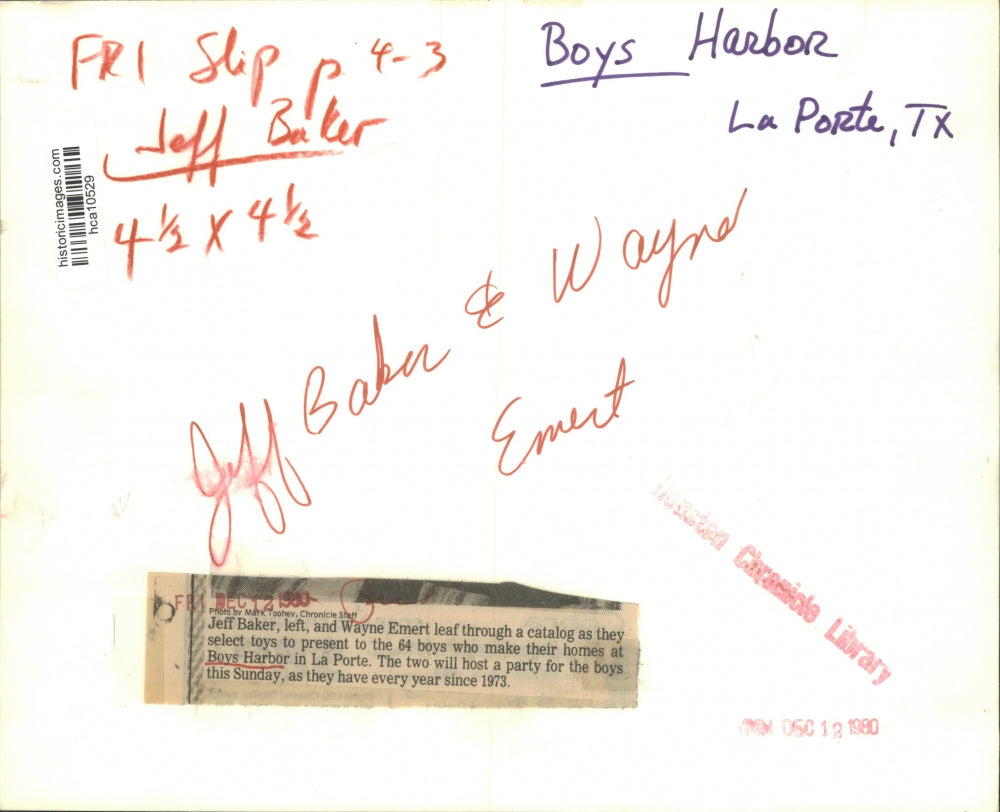 FRI Slip p 4-3
Jeff Baker
4 1/2 X 4 1/2
Boys Harbor
La Porte, TX
historicimages.com
hca10529
Jeff Baker & Wayne
Emert
Houston Chronicle Library
FRI DEC 12 1980
Photo by Mark Toohey, Chronicle Staff
Jeff Baker, left, and Wayne Emert leaf through a catalog as they
select toys to present to the 64 boys who make their homes at
Boys Harbor in La Porte. The two will host a party for the boys
this Sunday, as they have every year since 1973.
DEC 12 1980